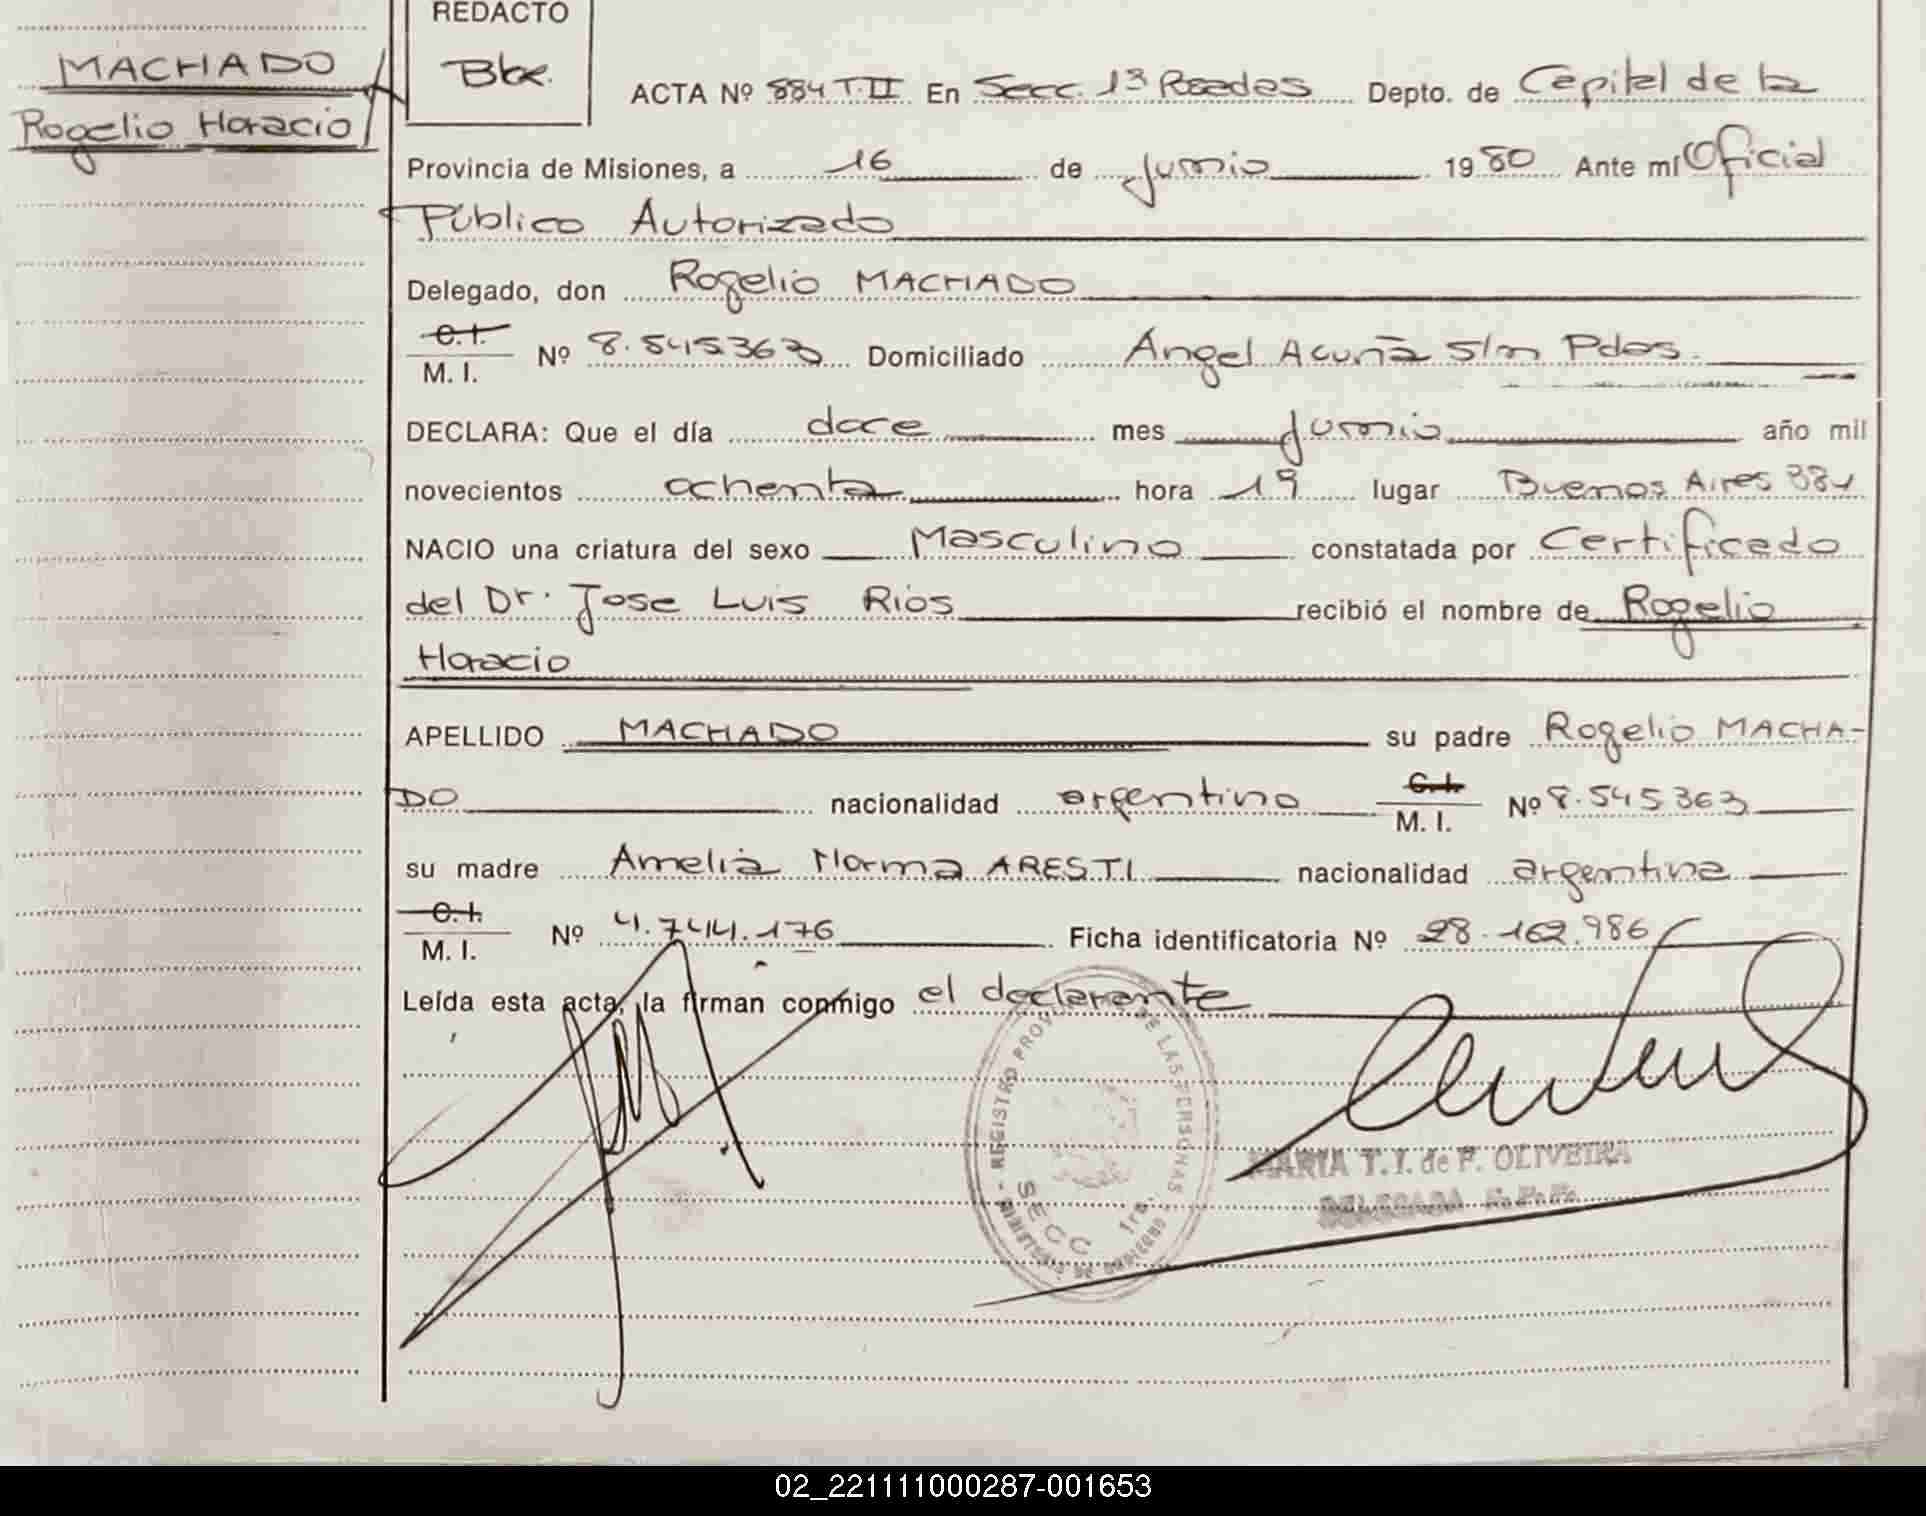 REDACTO
MACHADO
Rogelio Horacio
ACTA Nº 884 T.II En Secc. 1ª Posadas Depto. de Capital de la
Provincia de Misiones, a 16 de junio 1980 Ante mí Oficial
Público Autorizado
Delegado, don Rogelio MACHADO
C.I.
M. I. Nº 8.545.363 Domiciliado Angel Acuña s/n Pdas.
DECLARA: Que el día doce mes junio año mil
novecientos ochenta hora 19 lugar Buenos Aires
NACIO una criatura del sexo Masculino constatada por Certificado
del Dr. Jose Luis Rios recibió el nombre de Rogelio
Horacio
APELLIDO MACHADO su padre Rogelio MACHA-
DO nacionalidad argentino C.I. M. I. Nº 8.545363
su madre Amelia Norma ARESTI nacionalidad argentina
C.I.
M. I. Nº 4.744.176 Ficha identificatoria Nº 28.162.986
Leída esta acta, la firman conmigo el declarante
REGISTRO PROVINCIAL DE LAS PERSONAS
SECC 1ra.
MINISTERIO DE GOBIERNO
MARIA T. I. de F. OLIVEIRA
DELEGADA R.P.P.
02_221111000287-001653